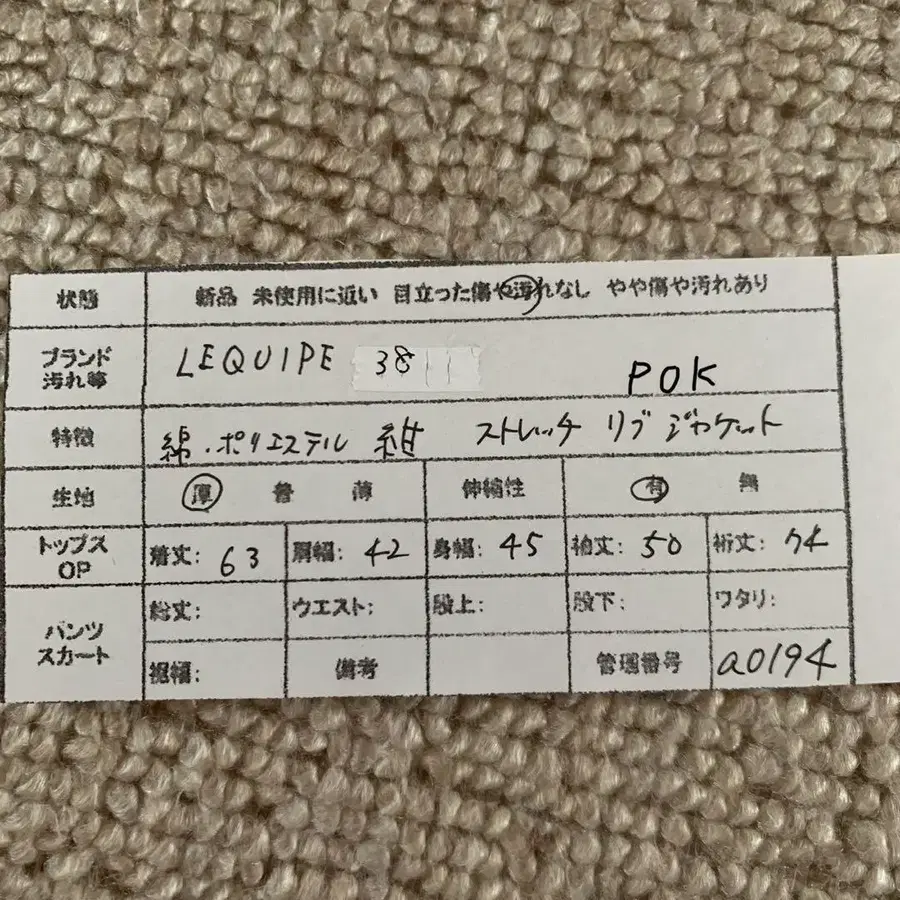 状態 新品 未使用に近い 目立った傷や汚れなし やや傷や汚れあり
ブランド 汚れ等 LEQUIPE 38 POK
特徴 綿・ポリエステル 紺 ストレッチ リブ ジャケット
生地 厚 普 薄 伸縮性 有 無
トップス OP 着丈: 63 肩幅: 42 身幅: 45 袖丈: 50 裄丈: 74
パンツ スカート 総丈: ウエスト: 股上: 股下: ワタリ:
裾幅: 備考 管理番号 a0194